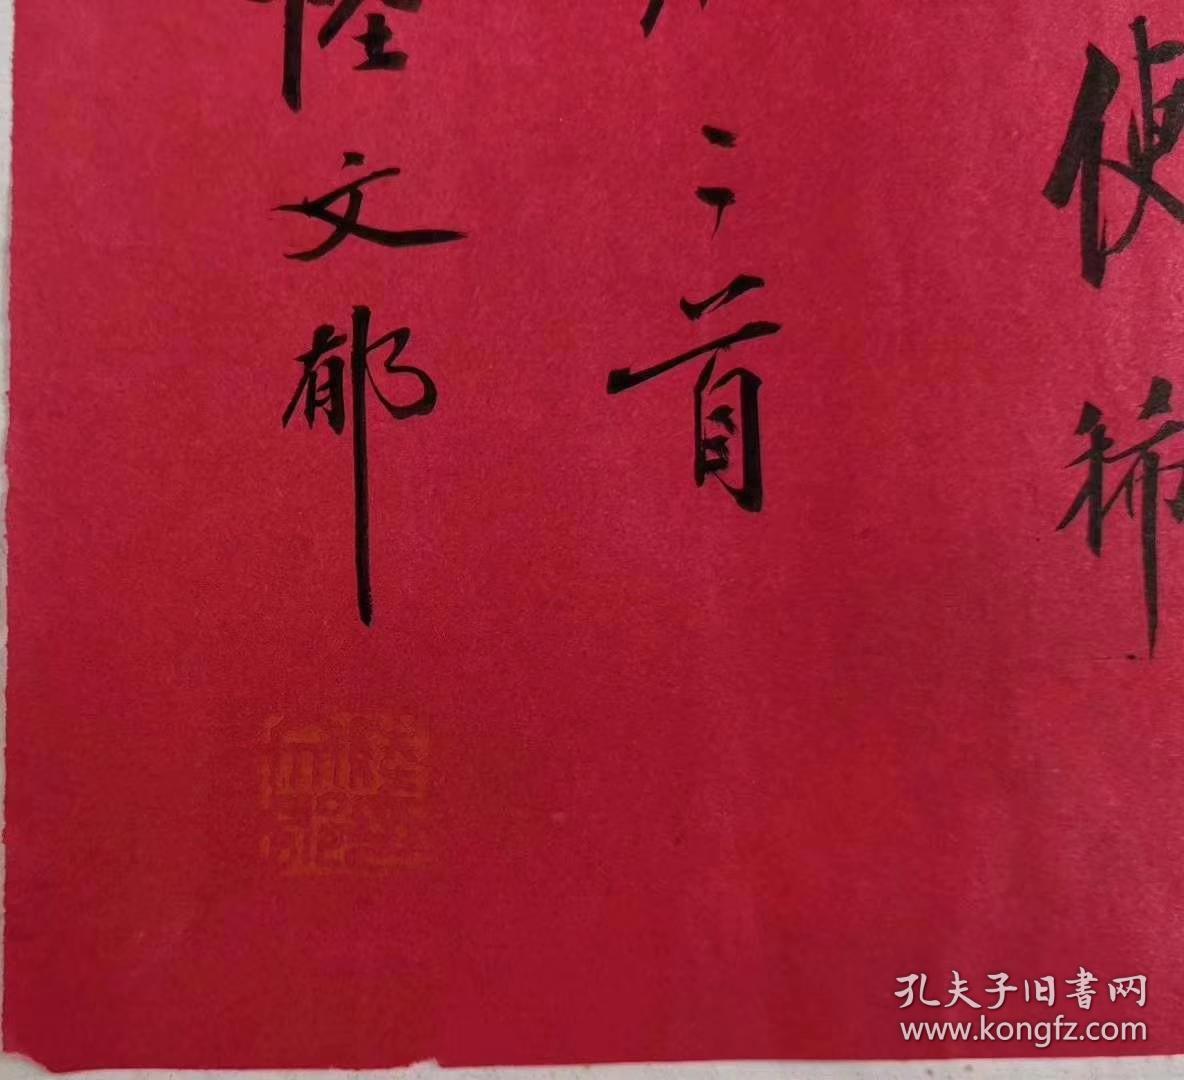 便稀
二首
文郁
孔夫子旧书网
www.kongfz.com